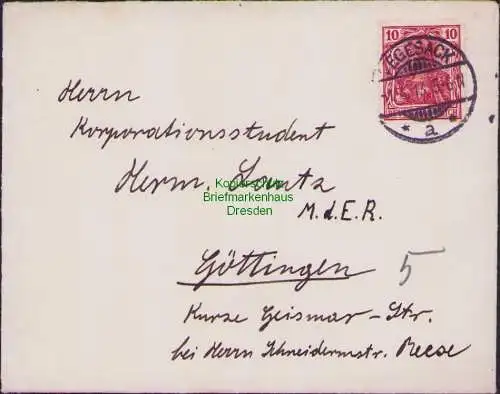 10 10
VEGESACK
* a *
Herrn
Korporationsstudent
Herm. Lantz
M.d.E.R.
Kopierschutz
Briefmarkenhaus
Dresden
Göttingen 5
Kurze Geismar-Str.
bei Herrn Schneidermstr. Reese